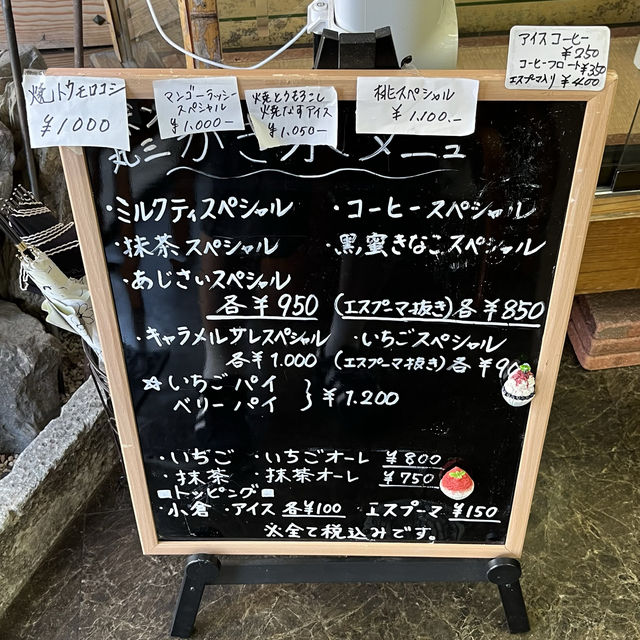 焼トウモロコシ
¥1000
マンゴーラッシー
スペシャル
¥1.000-
焼とうもろこし
焼なすアイス
¥1.050-
桃スペシャル
¥1.100.-
アイスコーヒー
¥250
コーヒーフロート¥350
エスプーマ入り¥400
かき氷メニュー
・ミルクティスペシャル ・コーヒースペシャル
・抹茶スペシャル ・黒蜜きなこスペシャル
・あじさいスペシャル
各¥950 (エスプーマ抜き)各¥850
・キャラメルサレスペシャル ・いちごスペシャル
各¥1.000 (エスプーマ抜き)各¥9
☆いちごパイ
ベリーパイ } ¥1.200
・いちご ・いちごオーレ ¥800
・抹茶 ・抹茶オーレ ¥750
■トッピング■
・小倉 ・アイス 各¥100 ・エスプーマ ¥150
※全て税込みです。